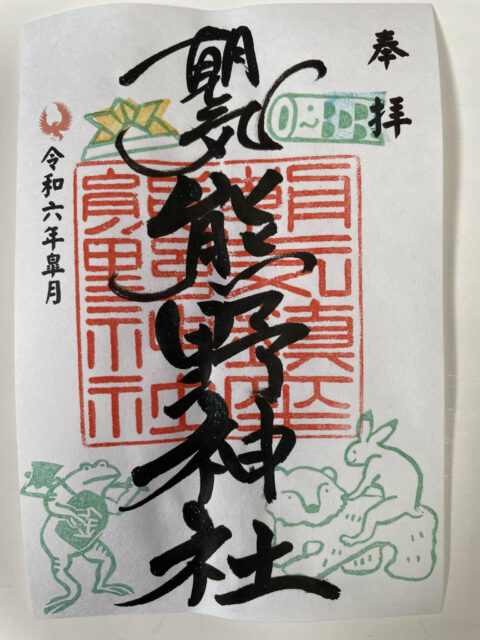 奉拝
朝気熊野神社
令和六年皐月